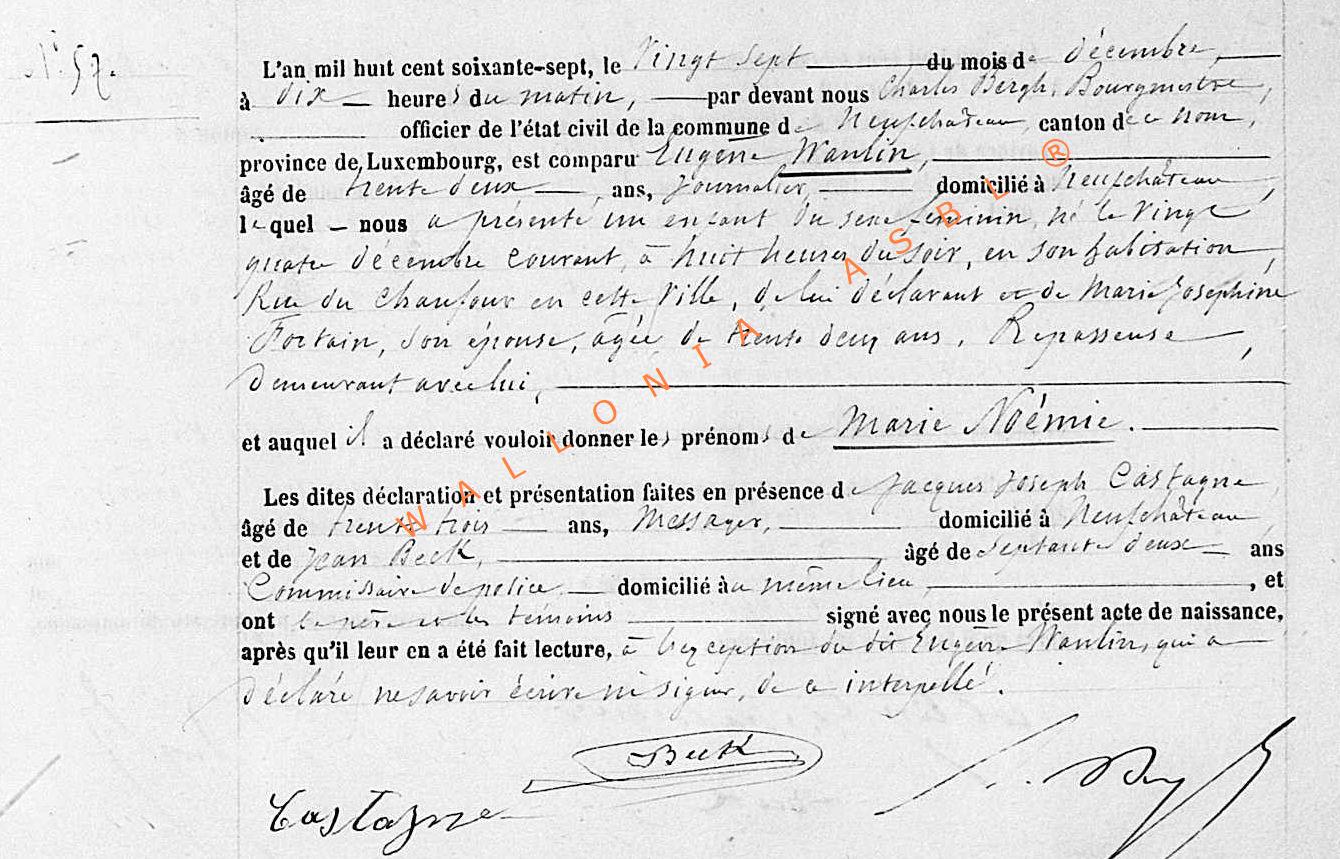 N° 57.
L'an mil huit cent soixante-sept, le Vingt sept du mois de décembre,
à dix heures du matin, par devant nous Charles Bergh, Bourgmestre,
officier de l'état civil de la commune de Neufchâteau, canton de ce nom,
province de Luxembourg, est comparu Eugène Wanlin,
âgé de trente deux ans, journalier, domicilié à Neufchâteau,
lequel nous a présenté un enfant du sexe féminin, né le vingt
quatre décembre courant, à huit heures du soir, en son habitation,
Rue du Chaufour en cette Ville, de lui déclarant et de Marie Josephine
Fortain, son épouse, agée de trente deux ans, Repasseuse,
demeurant avec lui,
et auquel il a déclaré vouloir donner les prénoms de Marie Noémie.
Les dites déclaration et présentation faites en présence de Jacques Joseph Castagne,
âgé de trente trois ans, Messager, domicilié à Neufchâteau
et de Jean Beck, âgé de septante deux ans
Commissaire de police domicilié au même lieu, et
ont le père et les témoins signé avec nous le présent acte de naissance,
après qu'il leur en a été fait lecture, à l'exception du dit Eugène Wanlin, qui a
déclaré ne savoir écrire ni signer, de ce interpellé.
Beck
Castagne
WALLONIA ASBL ®